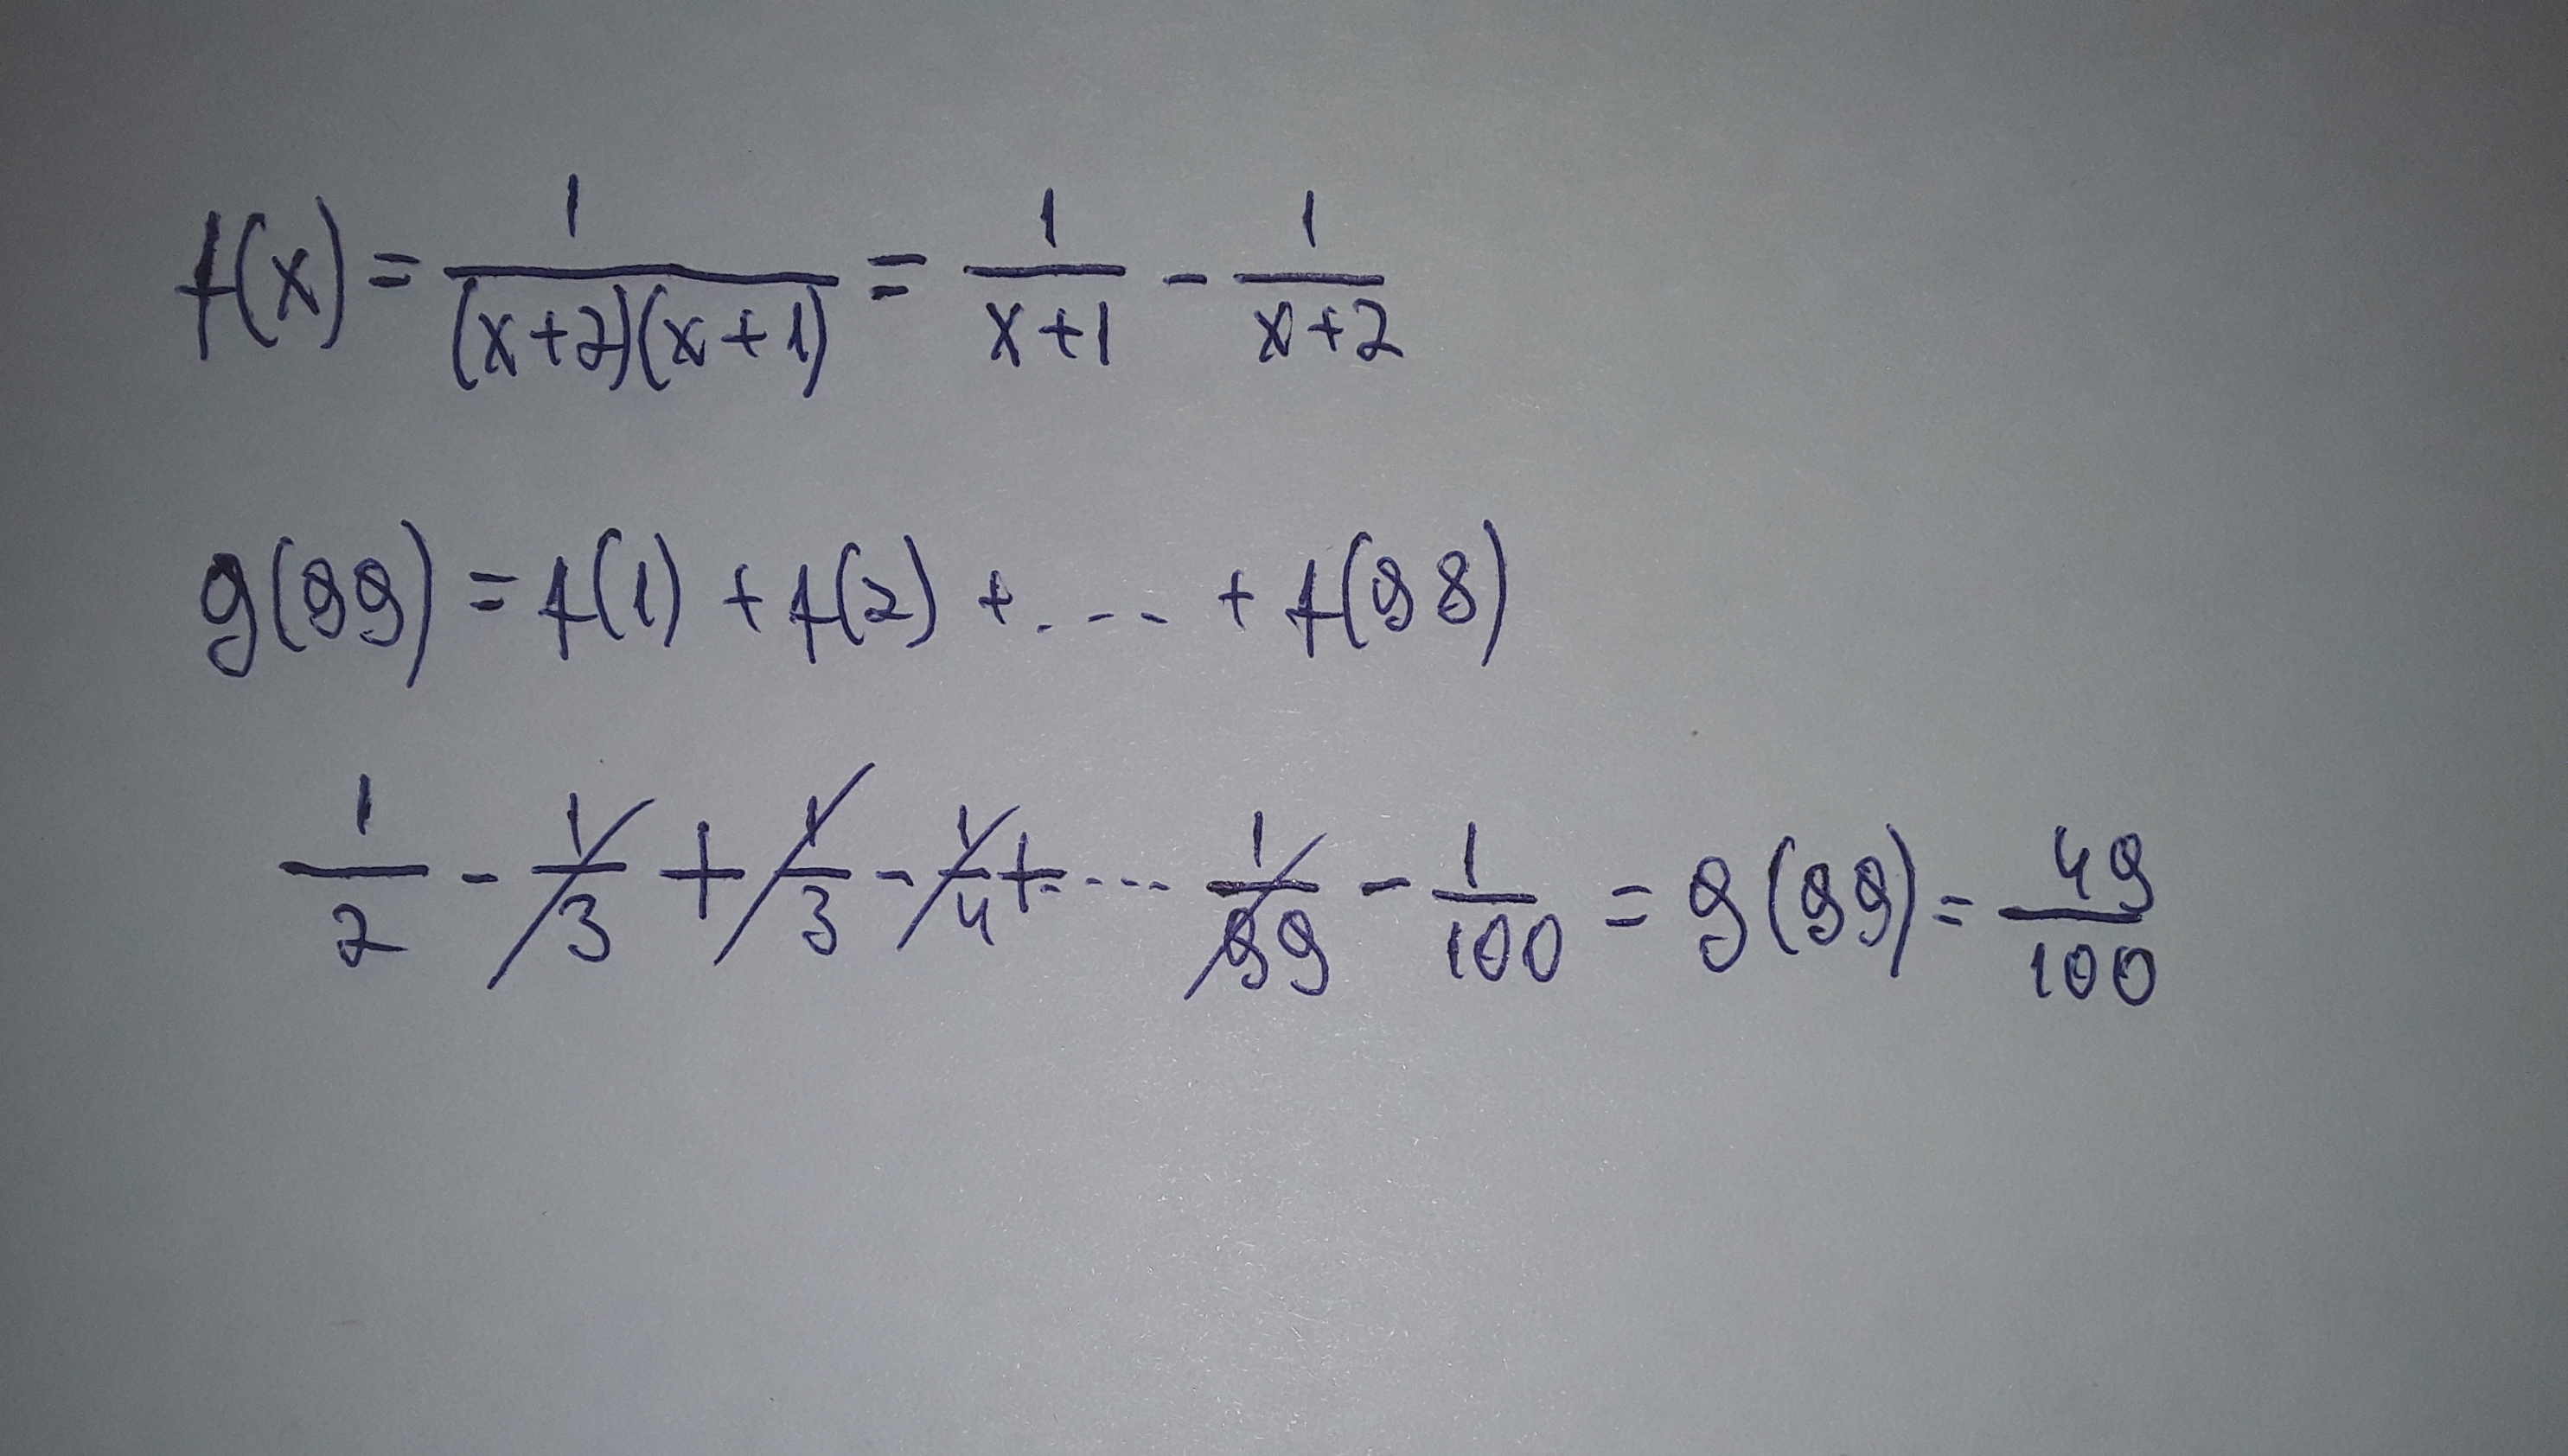 f(x) = 1/((x+2)(x+1)) = 1/(x+1) - 1/(x+2)
g(99) = f(1) + f(2) + .--- + f(98)
1/2 - 1/3 + 1/3 - 1/4 + .--- 1/99 - 1/100 = g(99) = 49/100